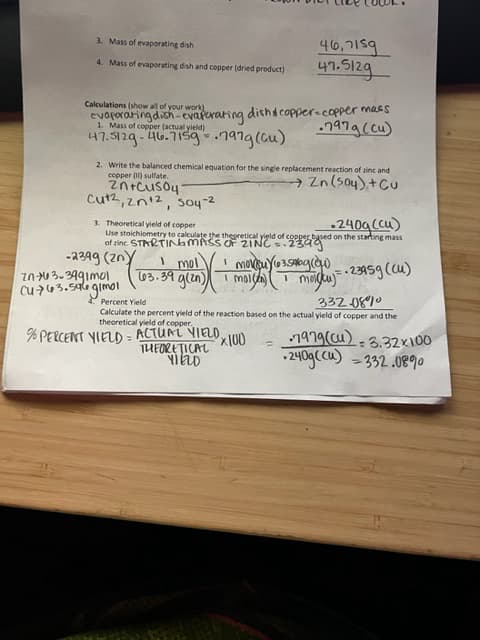 3. Mass of evaporating dish 46.715g
4. Mass of evaporating dish and copper (dried product) 47.512g
Calculations (show all of your work)
evaporating dish - evaporating dish & copper = copper mass
1. Mass of copper (actual yield) .797g (Cu)
47.512g - 46.715g = .797g (Cu)
2. Write the balanced chemical equation for the single replacement reaction of zinc and
copper (II) sulfate.
Zn + CuSO4 → Zn(SO4) + Cu
Cu+2, Zn+2, SO4-2
3. Theoretical yield of copper .240g (Cu)
Use stoichiometry to calculate the theoretical yield of copper based on the starting mass
of zinc. STARTING MASS OF ZINC = .239g
.239g (Zn) (1 mol / 63.39 g (Zn)) (1 mol (Cu) / 1 mol (Zn)) (63.546g (Cu) / 1 mol (Cu)) = .2395g (Cu)
Zn → 63.39 g/mol
Cu → 63.546 g/mol
4. Percent Yield 332.08%
Calculate the percent yield of the reaction based on the actual yield of copper and the
theoretical yield of copper.
% PERCENT YIELD = ACTUAL YIELD / THEORETICAL YIELD x100 = .797g (Cu) / .240g (Cu) = 3.32 x 100
= 332.08%